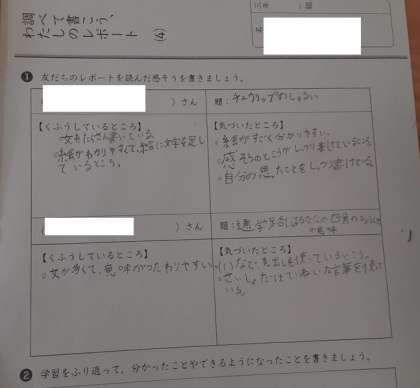 調べて書こう、
わたしのレポート (4)
三年 組
名
❶ 友だちのレポートを読んだ感そうを書きましょう。
( ) さん
題：チューリップのしゅるい
【くふうしているところ】
文もたくさん書いている
絵がわかりやすくて、絵に文字を足し
ているところ。
【気づいたところ】
・絵がすごく分かりやすい。
・感そうのところがしっかり書けているところ
・自分の思ったことをしっかり書けている。
( ) さん
題：
の意味
【くふうしているところ】
・文が多くて、意味がつたわりやすい
【気づいたところ】
・(1)など、見出しを使っているところ。
ていねいな言葉を使って
いる。
❷ 学習をふり返って、分かったことやできるようになったことを書きましょう。